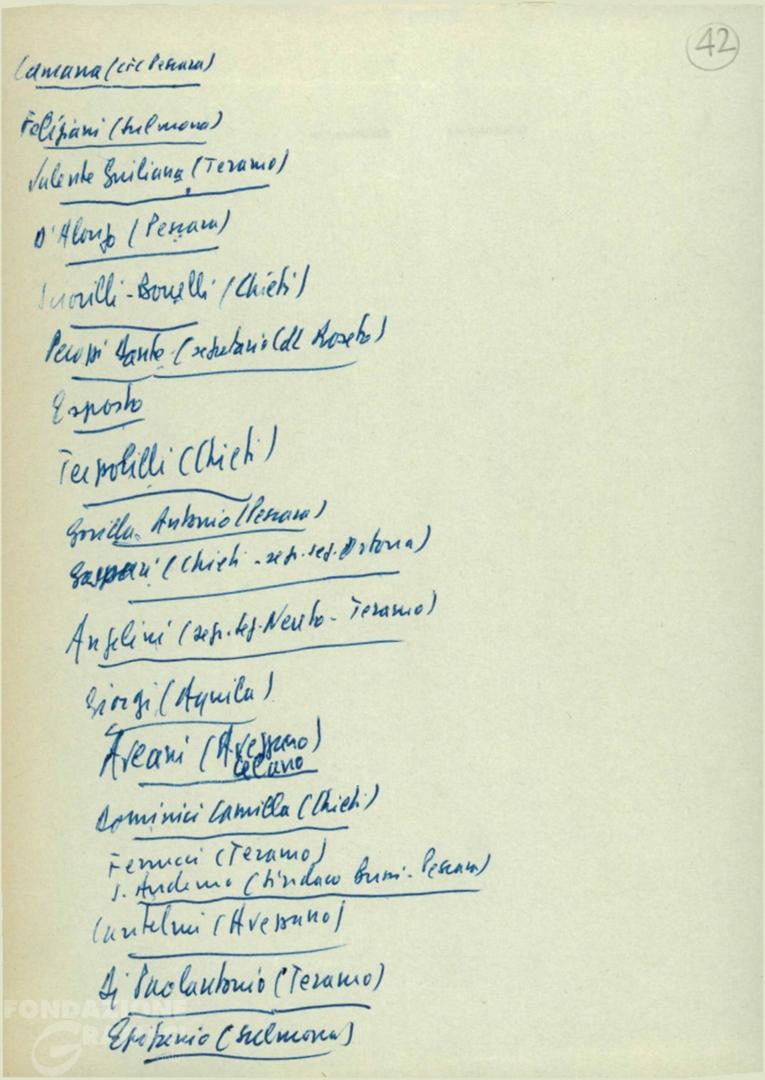 42
(cic Pescara)
Feliziani (Sulmona)
Valente Giuliana (Teramo)
D'Alonzo (Pescara)
Bonelli (Chieti)
Dante (segretario CdL Roseto)
Esposto
Terpolilli (Chieti)
Antonio (Pescara)
Gaspari (Chieti - segr. seg. Ortona)
Angelini (segr. seg. Nereto - Teramo)
Giorgi (Aquila)
(Avezzano)
Celano
Dominici Camilla (Chieti)
Ferrucci (Teramo)
(Sindaco Bussi - Pescara)
Cantelmi (Avezzano)
Di Paolantonio (Teramo)
Epifanio (Sulmona)
FONDAZIONE
GRAMSCI